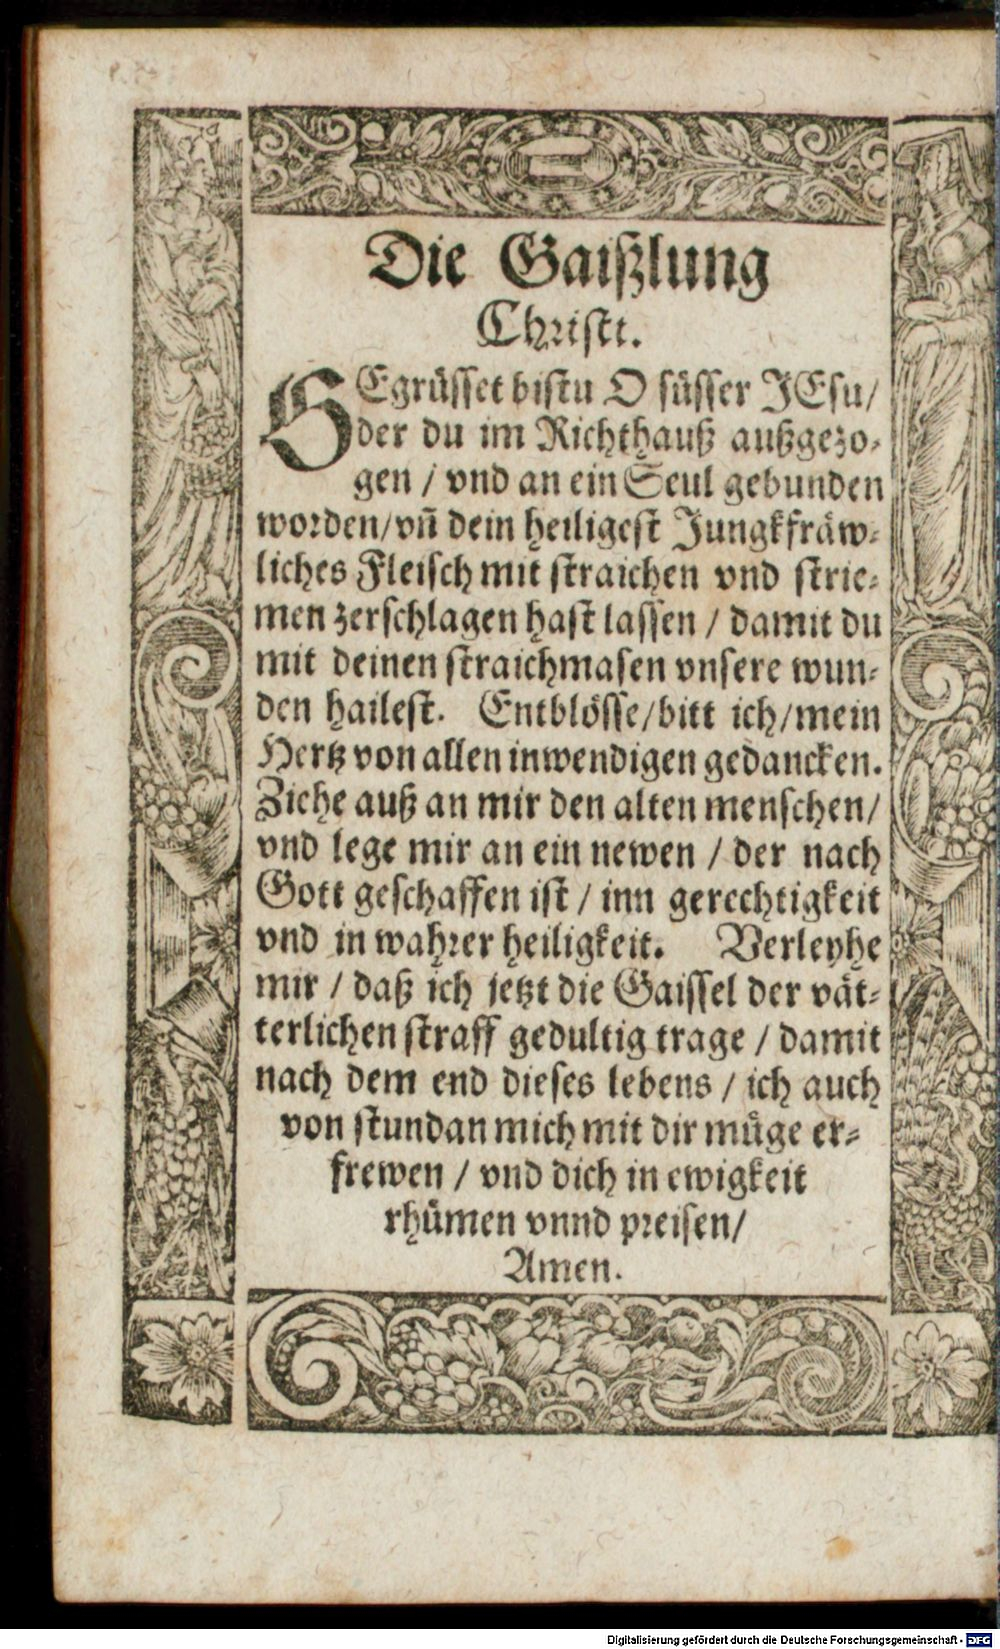 Die Gaißlung
Christi.
GEgrüsset bistu O süsser JEsu/
der du im Richthauß außgezo-
gen / vnd an ein Seul gebunden
worden/vñ dein heiligest Jungkfräw-
liches Fleisch mit straichen vnd strie-
men zerschlagen hast lassen / damit du
mit deinen straichmasen vnsere wun-
den hailest. Entblösse/bitt ich/mein
Hertz von allen inwendigen gedancken.
Ziehe auß an mir den alten menschen/
vnd lege mir an ein newen / der nach
Gott geschaffen ist / inn gerechtigkeit
vnd in wahrer heiligkeit. Verleyhe
mir / daß ich jetzt die Gaissel der vät-
terlichen straff gedultig trage / damit
nach dem end dieses lebens / ich auch
von stundan mich mit dir müge er-
frewen / vnd dich in ewigkeit
rhümen vnnd preisen/
Amen.
Digitalisierung gefördert durch die Deutsche Forschungsgemeinschaft - DFG